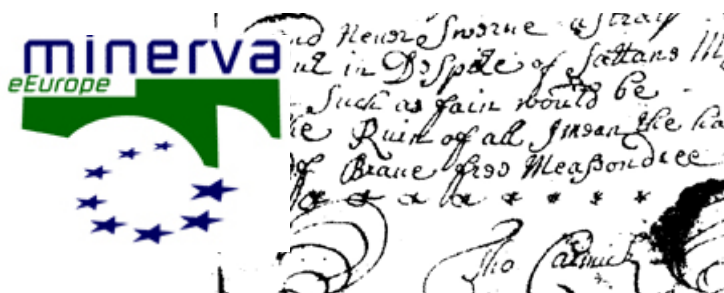 minerva
eEurope
and Never Swerue astray
in Despite of Sattans
Such as fain would be
Ruin of all I mean the
of Braue free Measondree
Tho Carmick